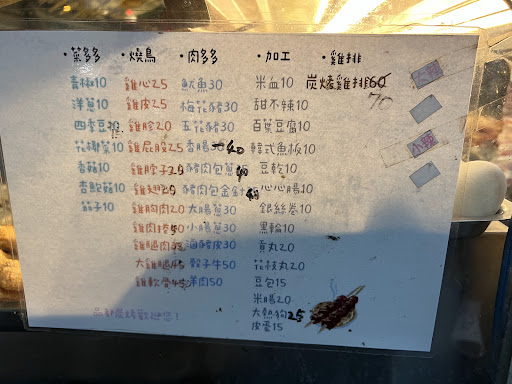 ·菜多多
青椒10
洋蔥10
四季豆
花椰菜10
香菇10
杏鮑菇10
筊子10
·燒鳥
雞心25
雞皮25
雞胗20
雞屁股25
雞脖子
雞翅
雞胸肉20
雞肉捲50
雞腿肉
大雞腿
雞軟骨
·肉多多
魷魚30
梅花豬30
五花豬30
香腸 40
豬肉包蔥 40
豬肉包金針
大腸蔥30
小腸蔥30
海豬皮30
骰子牛50
羊肉50
·加工
米血10
甜不辣10
百葉豆腐10
韓式魚板10
豆乾10
心心腸10
銀絲卷10
黑輪10
貢丸20
花枝丸20
豆包15
米腸20
大熱狗25
皮蛋15
·雞排
炭烤雞排60
70
小辣
歡迎您!